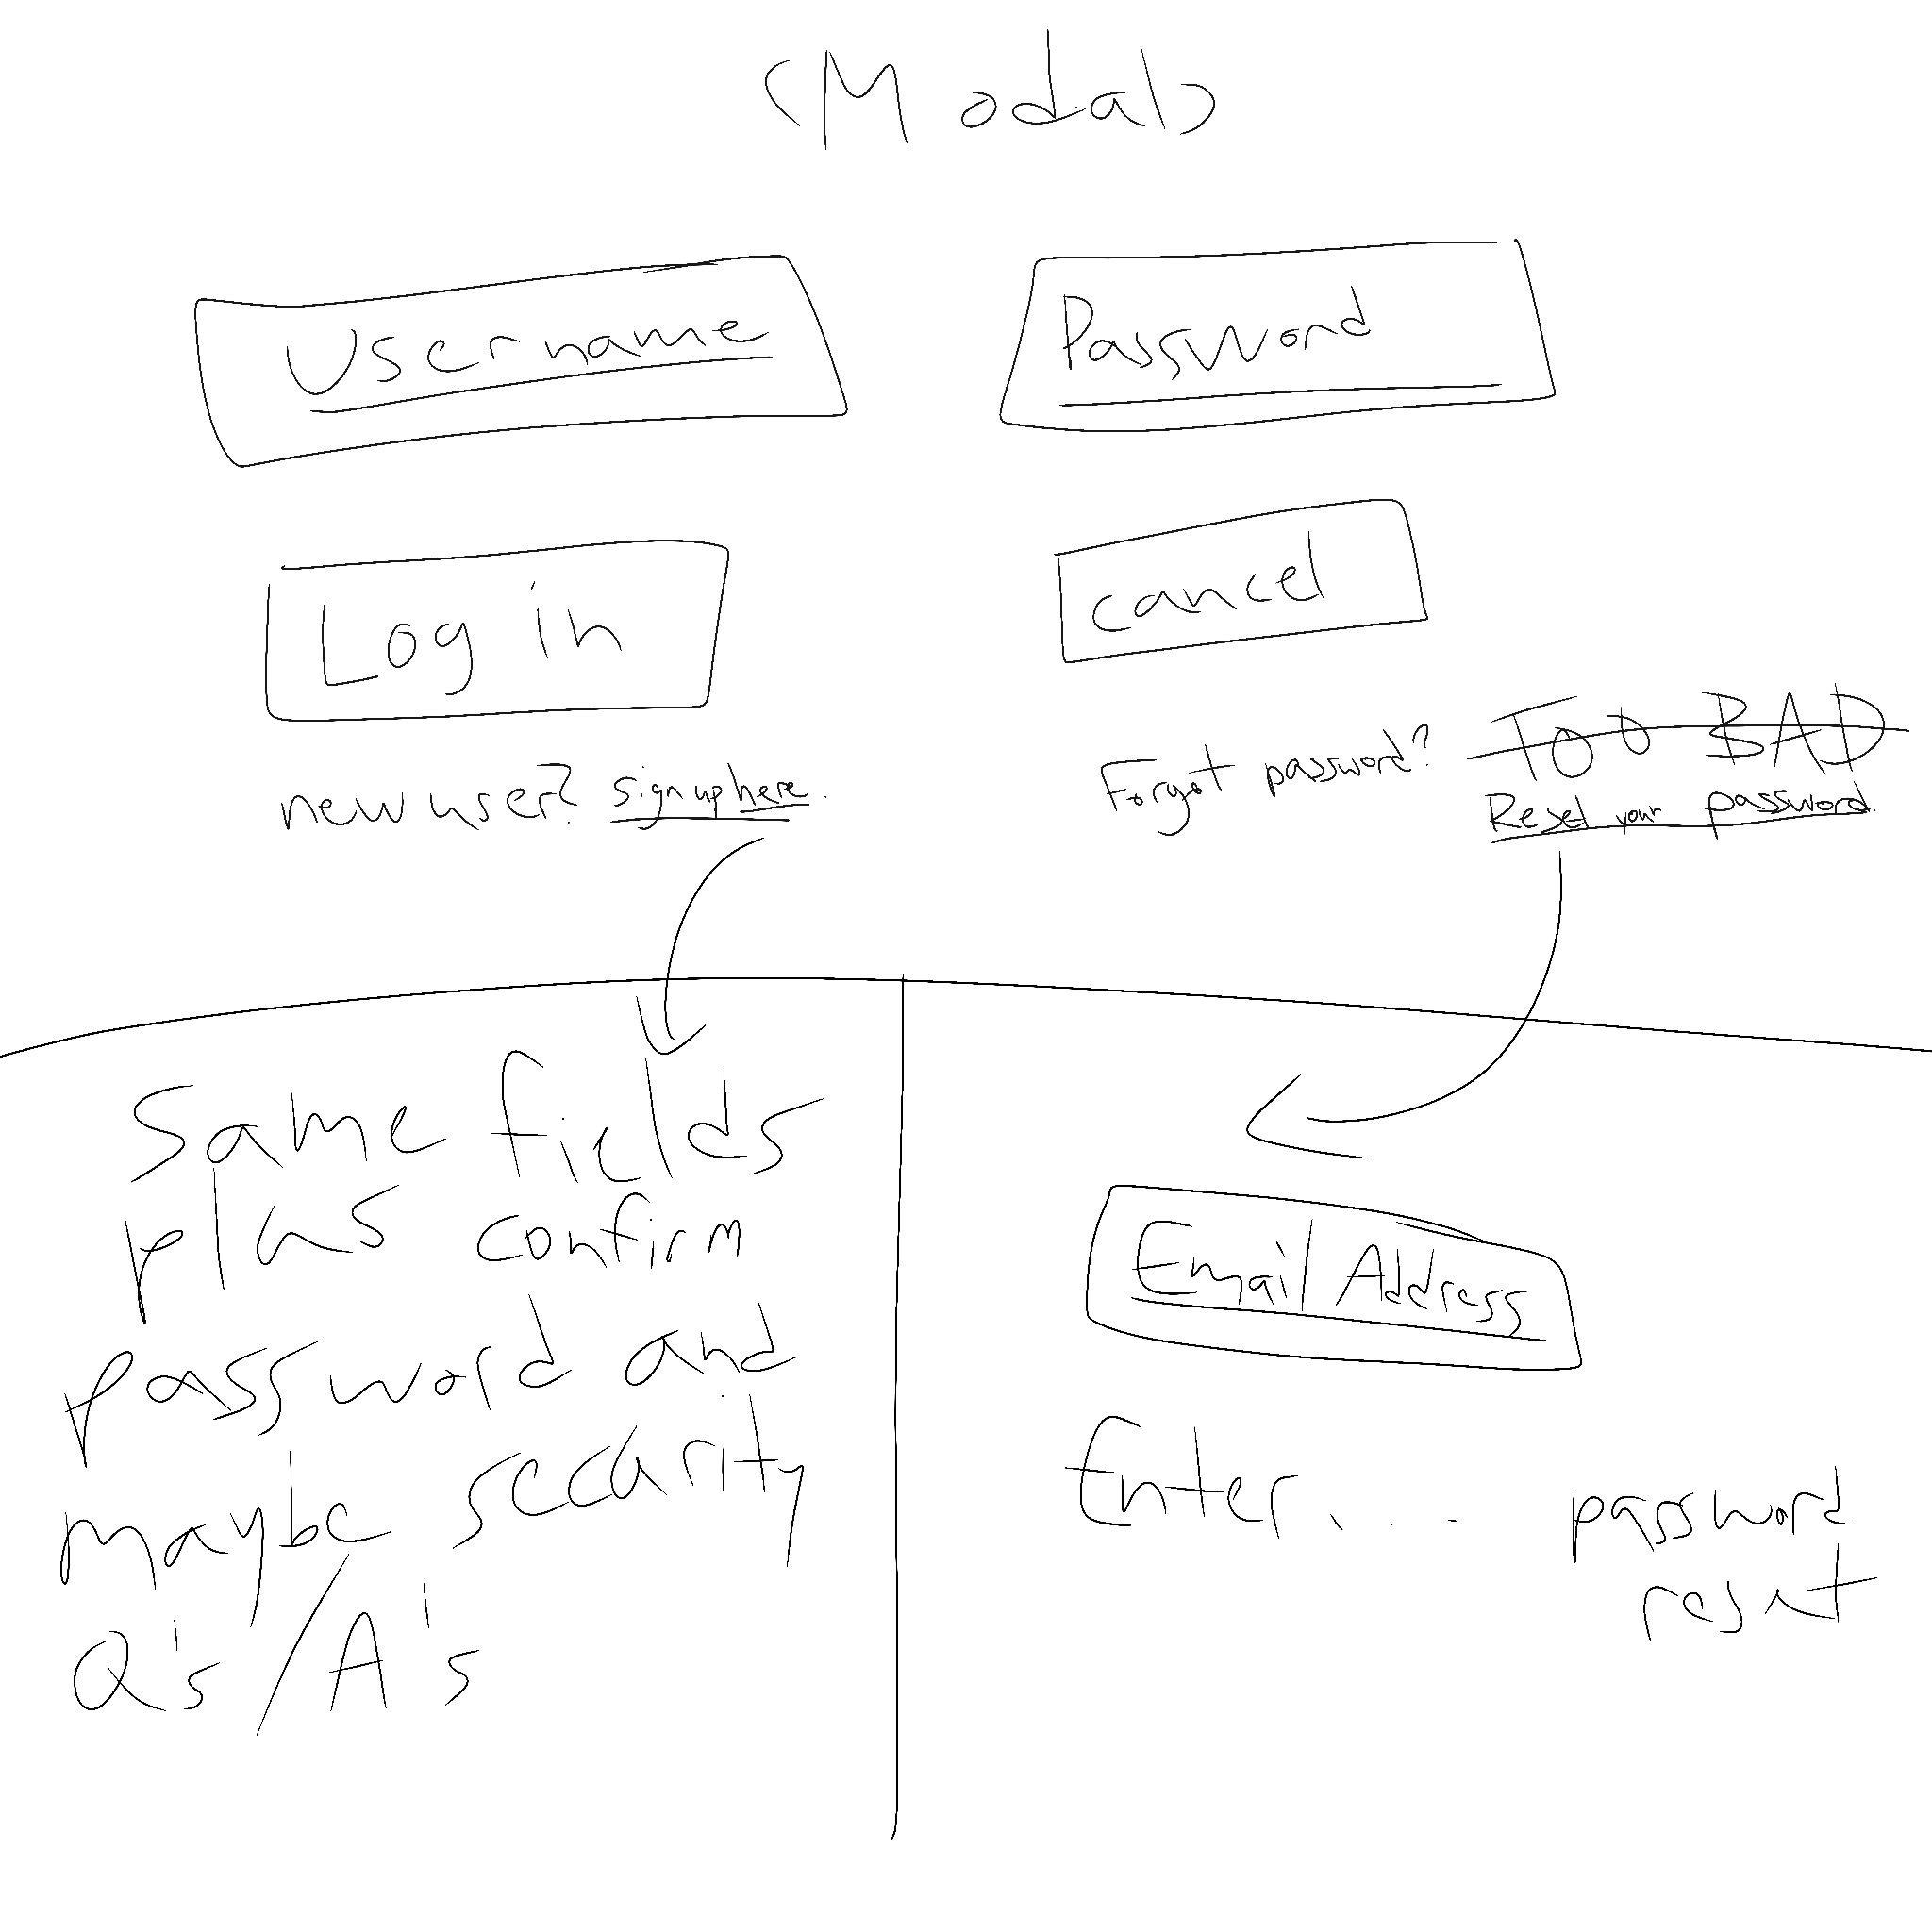 (Modal)
Username
Password
Log in
cancel
new user? sign up here.
Forgot password? TOO BAD
Reset your password.
Same fields
plus confirm
password and
maybe security
Q's/A's
Email Address
Enter.... password
reset